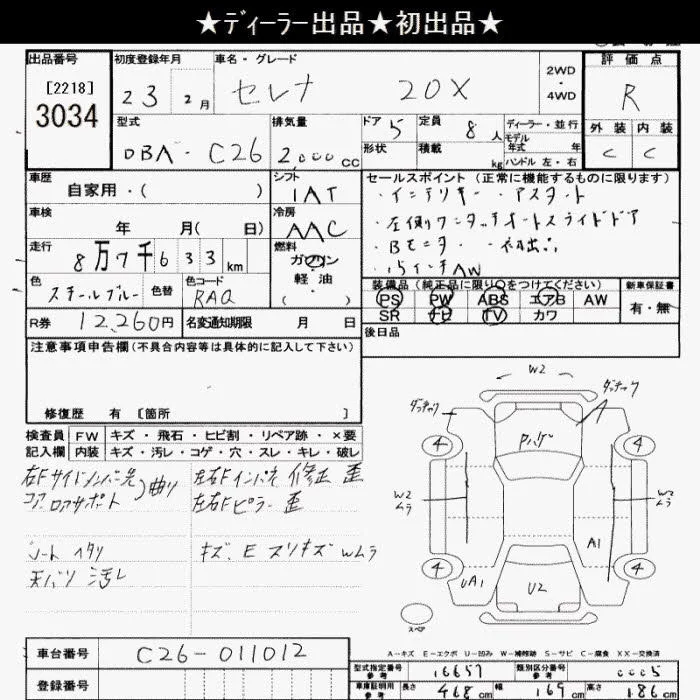 ★ディーラー出品★初出品★
出品番号
[2218]
3034
初度登録年月
23 2月
車名・グレード
セレナ 20X
2WD
・
4WD
評価点
R
外装 内装
C C
型式
DBA-C26
排気量
2000cc
ドア 5
形状
定員 8人
積載 kg
ディーラー・並行
モデル
年式 年
ハンドル 左・右
車歴
自家用・( )
シフト
IAT
車検
年 月( 日)
冷房
AAC
走行
8万7千633km
燃料
ガソリン
軽油
( )
色
スチールブルー
色替
色コード
RAQ
R券 12,260円
名変通知期限 月 日
セールスポイント (正常に機能するものに限ります)
・インテリキー ・アスタート
・左側ワンタッチオートスライドドア
・Bモニタ ・初出品
・15インチAW
装備品 (純正品に限り○をつけてください)
PS PW ABS エアB AW
SR ナビ TV カワ
新車保証書
有・無
後日品
注意事項申告欄 (不具合内容等は具体的に記入して下さい)
修復歴 有 [箇所 ]
検査員
記入欄
FW キズ・飛石・ヒビ割・リペア跡・×要
内装 キズ・汚レ・コゲ・穴・スレ・キレ・破レ
右Fサイドメンバー先
コアロアサポート 曲り
左右Fインパネ 修正 歪
左右Fピラー 歪
シート ヘタリ
天バリ 汚レ
キズ、E スリキズ Wムラ
W2
ダッチャク
ダッチャク
Pハゲ
4
4
W2
ムラ
W2
ムラ
A1
4
4
UA1
U2
スペア
A-キズ E-エクボ U-凹み W-補修跡 S-サビ C-腐食 XX-交換済
車台番号
C26-011012
登録番号
型式指定番号
参考
16657
類別区分番号
参考
0005
車庫証明用
参考
長さ 468cm 幅 169cm 高さ 186cm